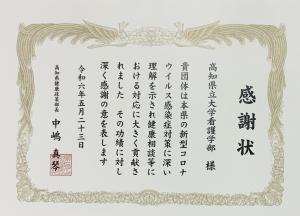 感謝状
高知県立大学看護学部 様
貴団体は本県の新型コロナ
ウイルス感染症対策に深い
理解を示され健康相談等に
おける対応に大きく貢献さ
れました その功績に対し
深く感謝の意を表します
令和六年五月二十三日
高知県健康政策部長
中嶋 真琴